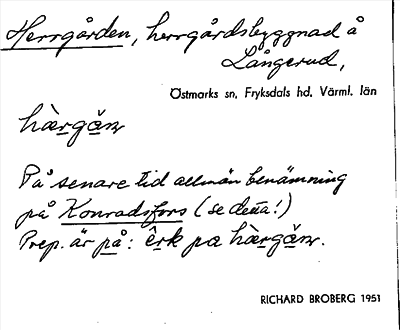 Herrgården, herrgårdsbyggnad å
Långerud,
Östmarks sn, Fryksdals hd, Värml. län
hærgǎn
På senare tid allmän benämning
på Konradsfors (se detta!)
Prep. är på: êrk pa hærgǎn.
RICHARD BROBERG 1951